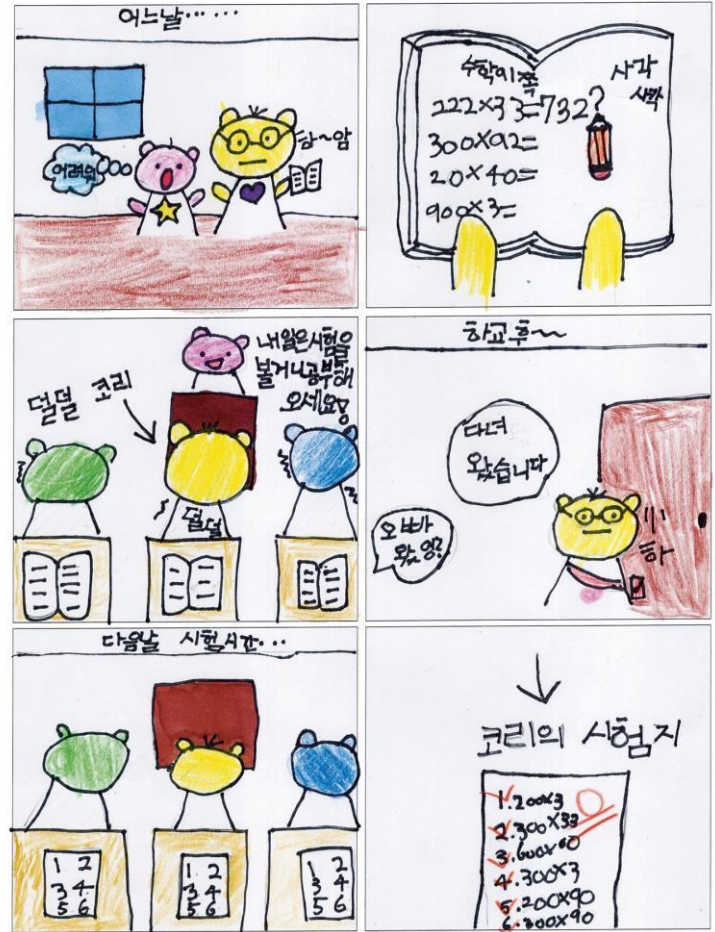 어느날······
어려워
함~암
수학익쪽
222×33=732?
300×92=
20×40=
900×3=
사각
사깍
내일은시험을
볼거니공부해
오세요!
덜덜
코리
덜덜
하교후~~
다녀
왔습니다
오빠
왔엉?
하
다음날 시험시간···
1 2
3 4
5 6
1 2
3 4
5 6
1 2
3 4
5 6
코리의 시험지
1.200×3
2.300×33
3.600×60
4.300×3
5.200×90
6.300×90